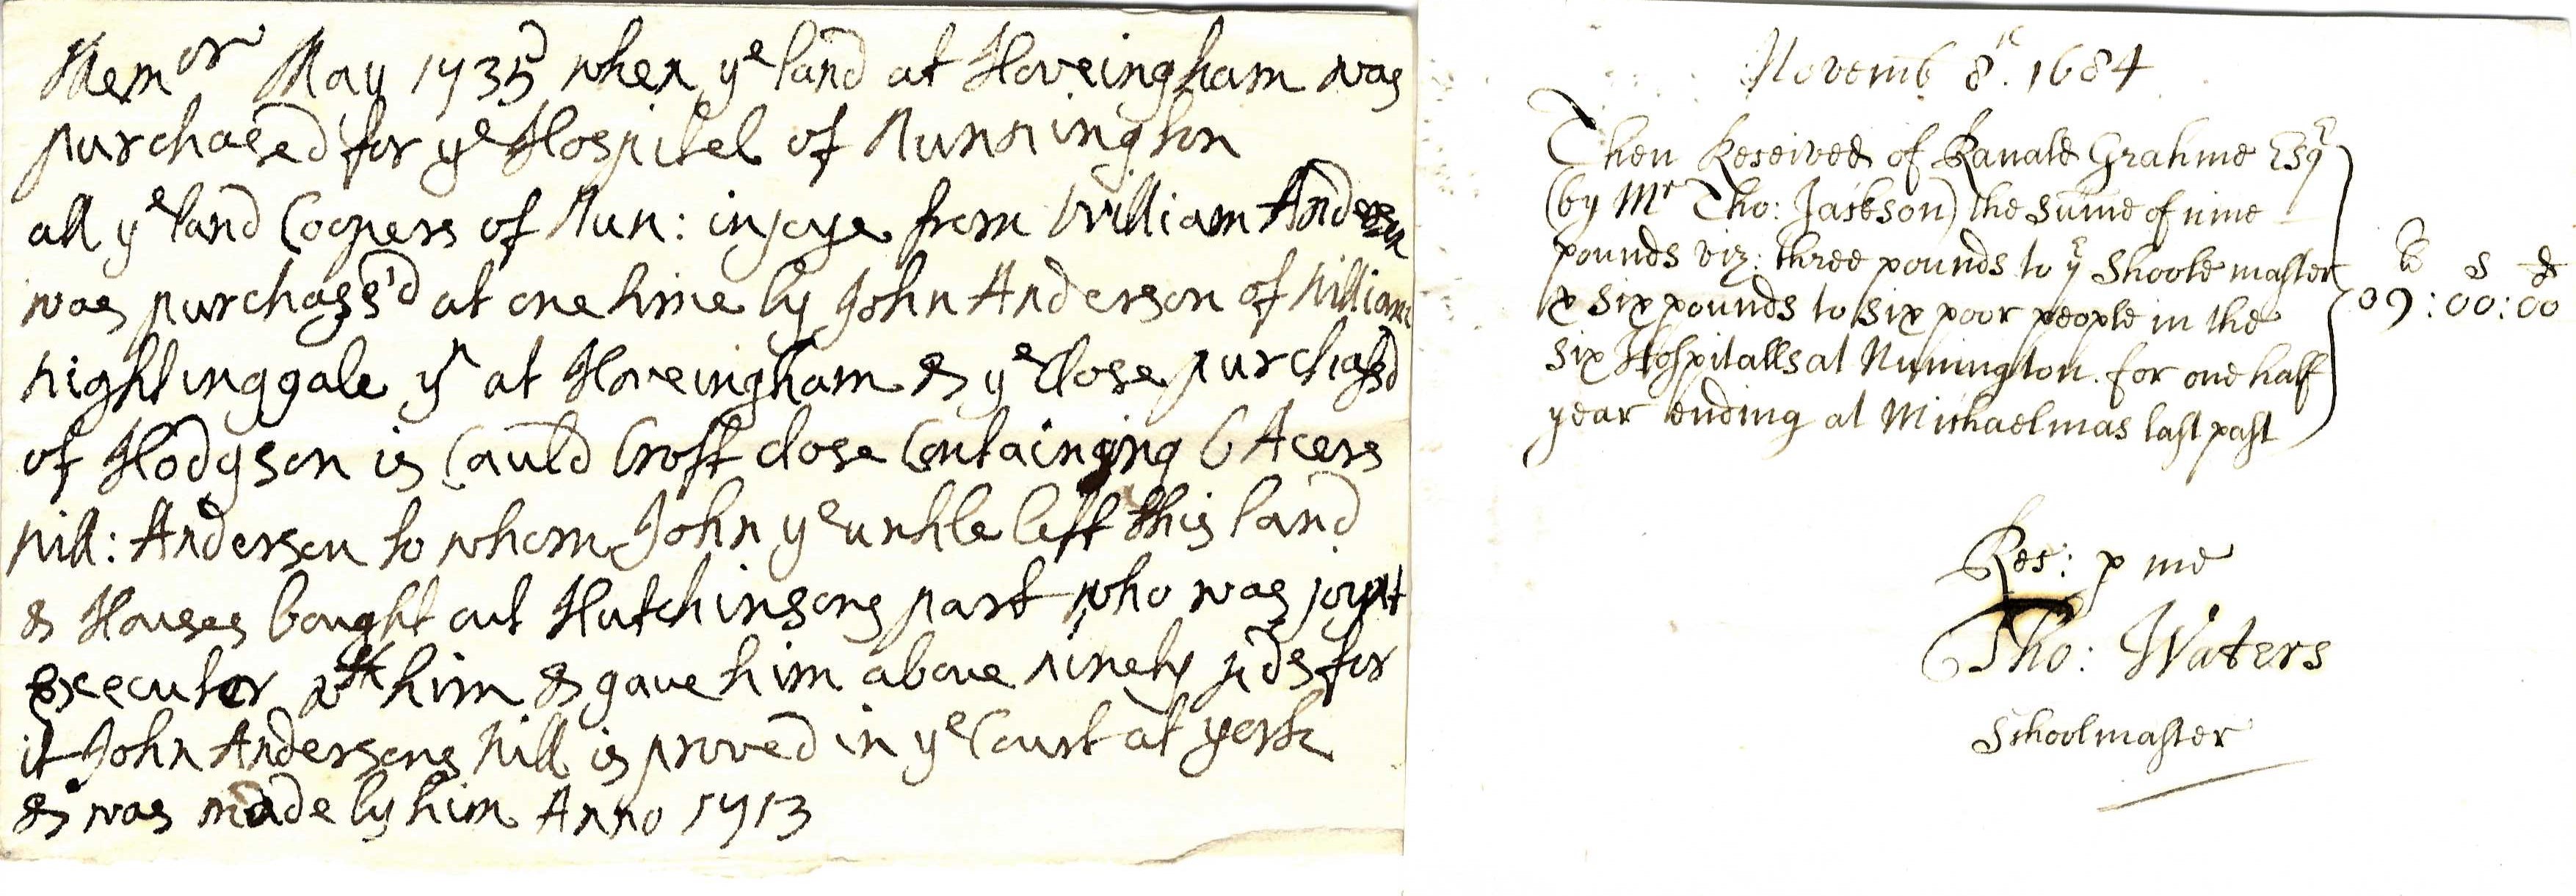 Memor May 1735 when ye land at Hoveingham was
purchased for ye Hospitel of Nunnington
all ye land Coopers of Nun: injoye from William Anderson
was purchass'd at one time by John Anderson of William
Nightinggale yn at Hoveingham & ye Close purchassd
of Hodgson is Cauld Croft close Containging 6 Acers
Will: Anderson to whom John ye unkle left this land
& Houses bought out Hutchinsons part who was joynt
Execcutor wth him & gave him above ninety pds for
it John Andersons Will is proved in ye Court at york
& was made by him Anno 1713
Novemb 8th. 1684
Then Received of Ranald Grahme Esqr
(by Mr Tho: Jackson) the sume of nine
pounds viz: three pounds to yr Shoole master
& six pounds to six poor people in the
six Hospitalls at Nunington. for one half
year ending at Michaelmas last past
lb s d
09:00:00
Rec: p me
Tho: Waters
Schoolmaster